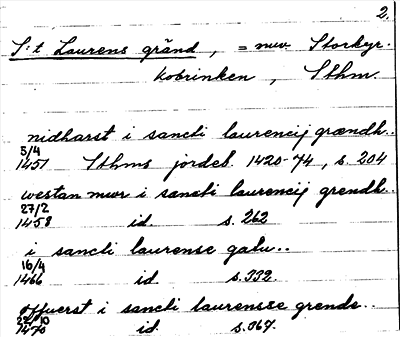 2.
S:t Laurens gränd, = nuv. Storkyr.
kobrinken, Sthm.
nidharst i sancti laurencij grændh..
5/4
1451 Sthms jordeb. 1420-74, s. 204
westan mwr i sancti laurencij grendh..
27/2
1458 id. s. 262
i sancti laurense gatu..
16/4
1466 id. s. 332.
offuerst i sancti laurensse grende..
22/10
1470 id. s. 367.